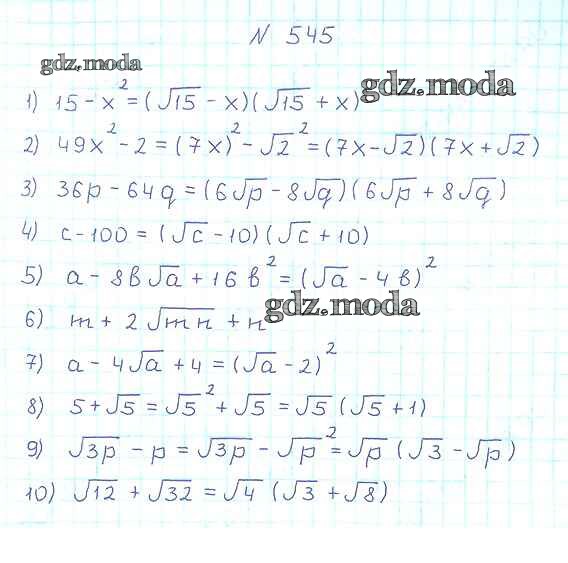 N 545
gdz.moda
1) 15 - x² = (√15 - x)(√15 + x)
gdz.moda
2) 49x² - 2 = (7x)² - √2² = (7x - √2)(7x + √2)
3) 36p - 64q = (6√p - 8√q)(6√p + 8√q)
4) c - 100 = (√c - 10)(√c + 10)
5) a - 8b√a + 16b² = (√a - 4b)²
gdz.moda
6) m + 2√mn + n
7) a - 4√a + 4 = (√a - 2)²
8) 5 + √5 = √5² + √5 = √5 (√5 + 1)
9) √3p - p = √3p - √p² = √p (√3 - √p)
10) √12 + √32 = √4 (√3 + √8)